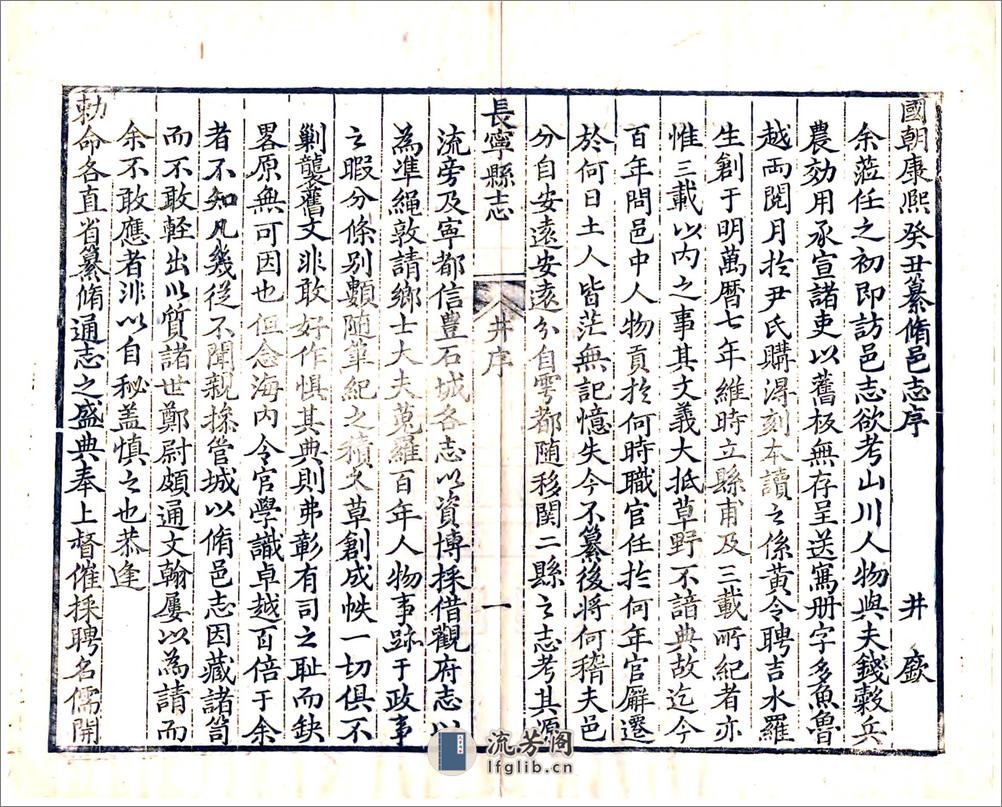 國朝康熙癸丑纂脩邑志序 井欽
余蒞任之初即訪邑志欲考山川人物與夫錢穀兵
農効用承宣諸吏以舊板無存呈送寫册字多魚魯
越兩閱月於尹氏購得刻本讀之係黃令聘吉水羅
生創于明萬曆七年維時立縣甫及三載所紀者亦
惟三載以内之事其文義大抵草野不諳典故迄今
百年間邑中人物貢於何時職官任於何年官廨遷
於何日土人皆茫無記憶失今不纂後將何稽夫邑
分自安遠安遠分自雩都随移関二縣之志考其源
長寧縣志 井序 一
流旁及寧都信豊石城各志以資博採借觀府志以
為準繩敦請鄉士大夫蒐羅百年人物事跡于政事
之暇分條別纇随筆紀之積久草創成帙一切俱不
剿襲舊文非敢好作惧其典則弗彰有司之耻而缺
畧原無可因也但念海内令官學識卓越百倍于余
者不知凡幾從不聞親操管城以脩邑志因藏諸笥
而不敢輕出以質諸世鄭尉頗通文翰屢以為請而
余不敢應者非以自秘盖慎之也恭逢
勅命各直省纂脩通志之盛典奉上督催採聘名儒開
流芳阁
lfglib.cn